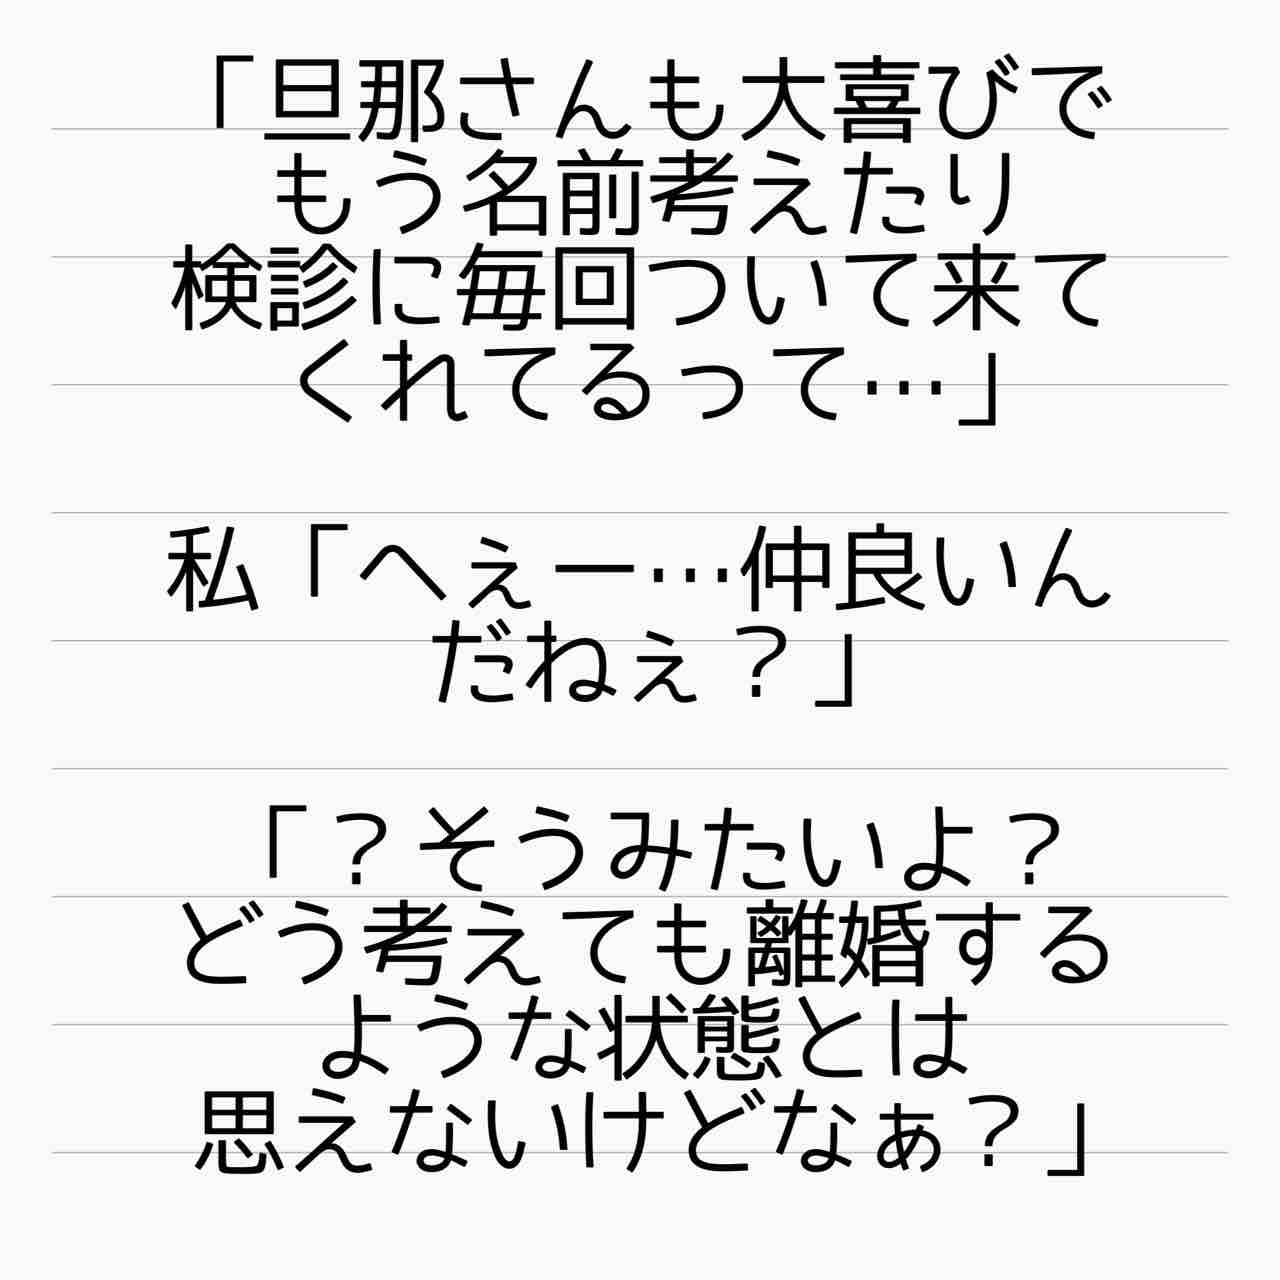 「旦那さんも大喜びで
もう名前考えたり
検診に毎回ついて来て
くれてるって…」
私「へぇー…仲良いん
だねぇ？」
「？そうみたいよ？
どう考えても離婚する
ような状態とは
思えないけどなぁ？」